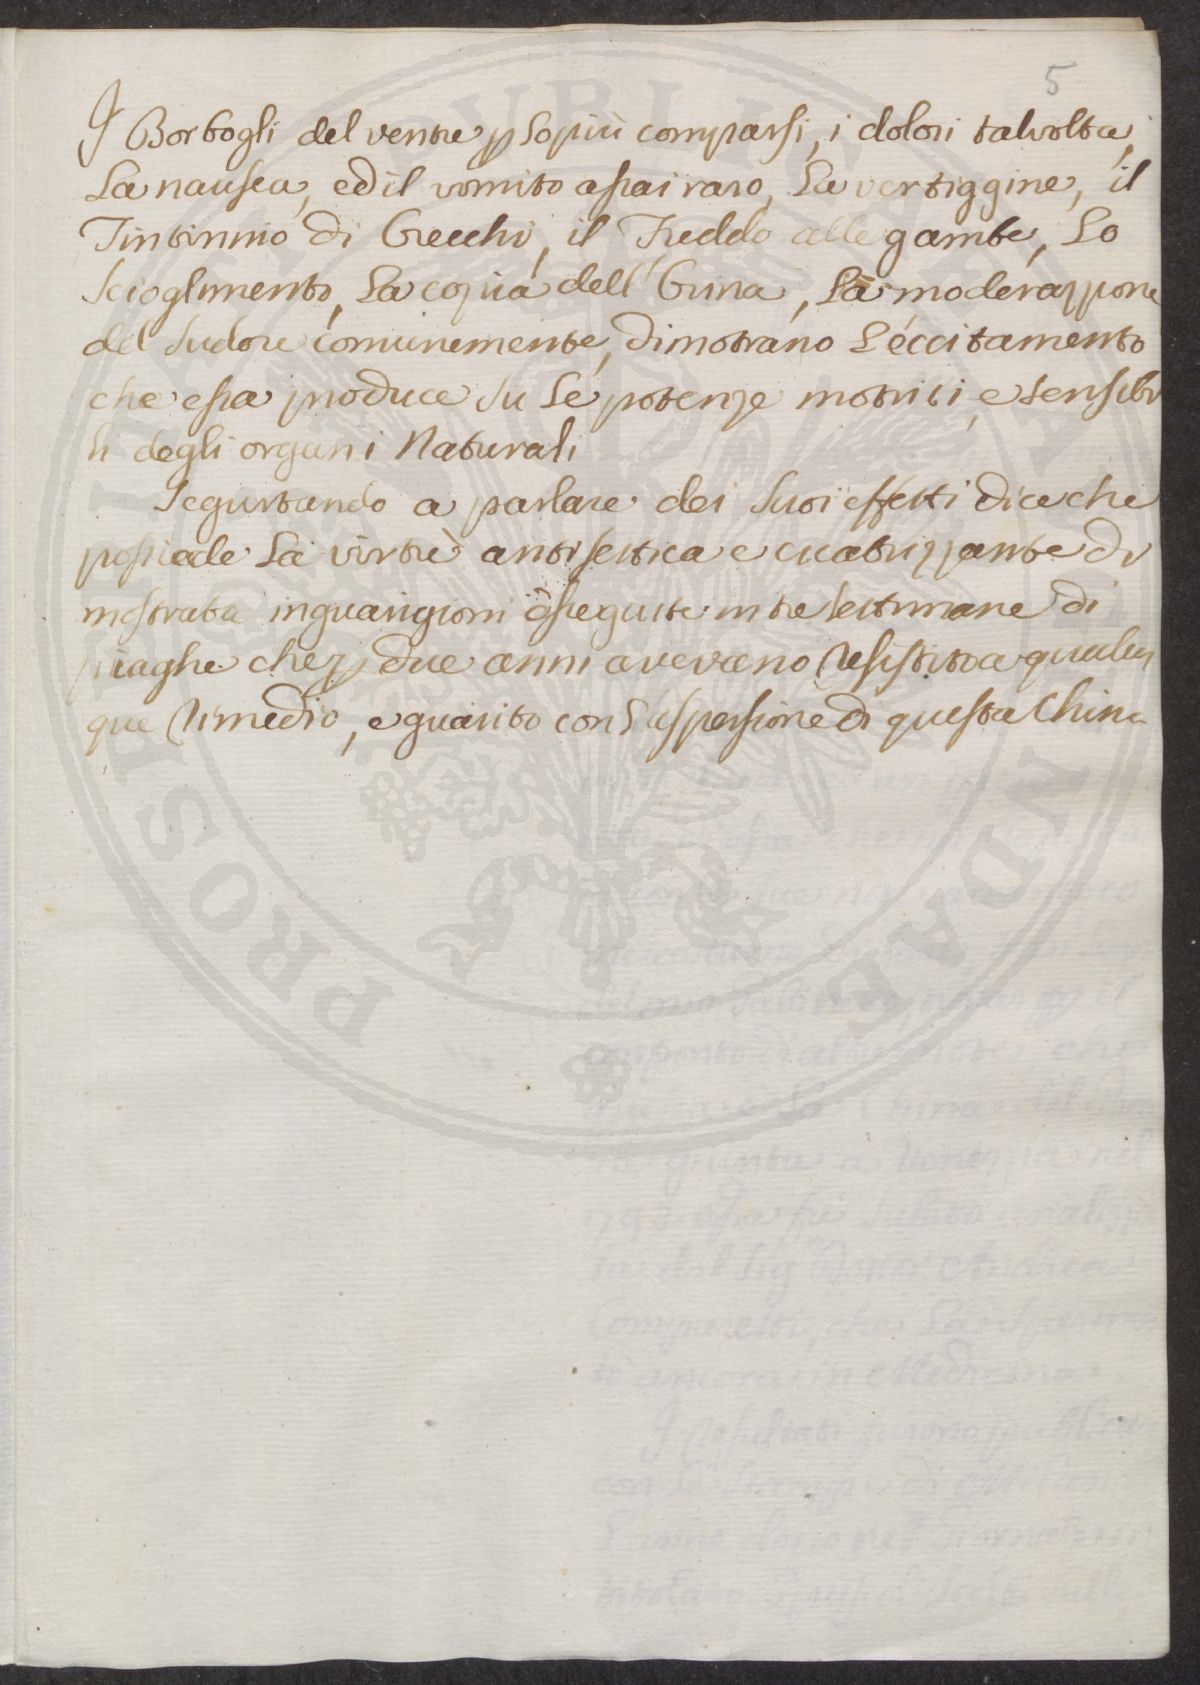 5
I Borbogli del ventre p lo più comparsi, i dolori talvolta,
La nausea, ed il vomito assai raro, La vertiggine, il
Tintinnio di Orecchi, il Freddo alle gambe, Lo
Scioglimento, La copia dell' Orina, La moderazzione
del Sudore comunemente, dimotrano L'eccitamento
che essa produce su Le potenze motrici, e sensibi
li degli organi Naturali
Seguitando a parlare dei suoi effetti dice che
possiede La virtù antisettica e cicatrizzante di
mostrata in guarigioni eseguite in tre settimane di
piaghe che p due anni avevano resistito a qualun
que rimedio, e guarito con L'aspersione di questa China
PROSPERITATI PUBLICAE AUGENDAE